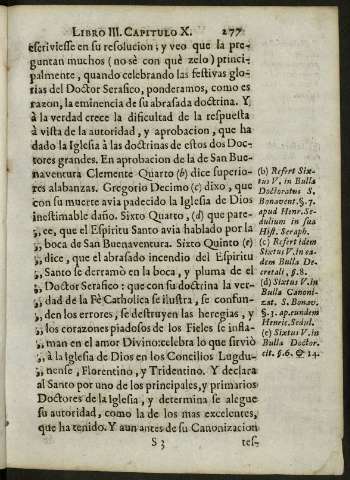 LIBRO III. CAPITULO X. 277
escriviesse en su resolucion; y veo que la pre-
guntan muchos (no sè con què zelo) princi-
palmente, quando celebrando las festivas glo-
rias del Doctor Serafico, ponderamos, como es
razon, la eminencia de su abrasada doctrina. Y
à la verdad crece la dificultad de la respuesta
à vista de la autoridad, y aprobacion, que ha
dado la Iglesia à las doctrinas de estos dos Doc-
tores grandes. En aprobacion de la de San Bue-
naventura Clemente Quarto (b) dice superio-
res alabanzas. Gregorio Decimo (c) dixo, que
con su muerte avia padecido la Iglesia de Dios
inestimable daño. Sixto Quarto, (d) que pare-
ce, que el Espiritu Santo avia hablado por la
,, boca de San Buenaventura. Sixto Quinto (e)
,, dice, que el abrasado incendio del Espiritu
,, Santo se derramò en la boca, y pluma de el
,, Doctor Serafico: que con su doctrina la ver-
,, dad de la Fè Catholica se ilustra, se confun-
,, den los errores, se destruyen las heregias, y
,, los corazones piadosos de los Fieles se infla-
,, man en el amor Divino: celebra lo que sirviò
,, à la Iglesia de Dios en los Concilios Lugdu-
,, nense, Florentino, y Tridentino. Y declara
al Santo por uno de los principales, y primarios
Doctores de la Iglesia, y determina se alegue
su autoridad, como la de los mas excelentes,
que ha tenido. Y aun antes de su Canonizacion
S 3 tes-
(b) Refert Six-
tus V. in Bulla
Doctoratus S.
Bonavent. §. 7.
apud Henr. Se-
dulium in sua
Hist. Seraph.
(c) Refert idem
Sixtus V. in ea-
dem Bulla De-
cretali, §. 8.
(d) Sixtus V. in
Bulla Canoni-
zat. S. Bonav.
§. 1. ap. eundem
Henric. Sedul.
(e) Sixtus V. in
Bulla Doctor.
cit. §. 6. & 14.